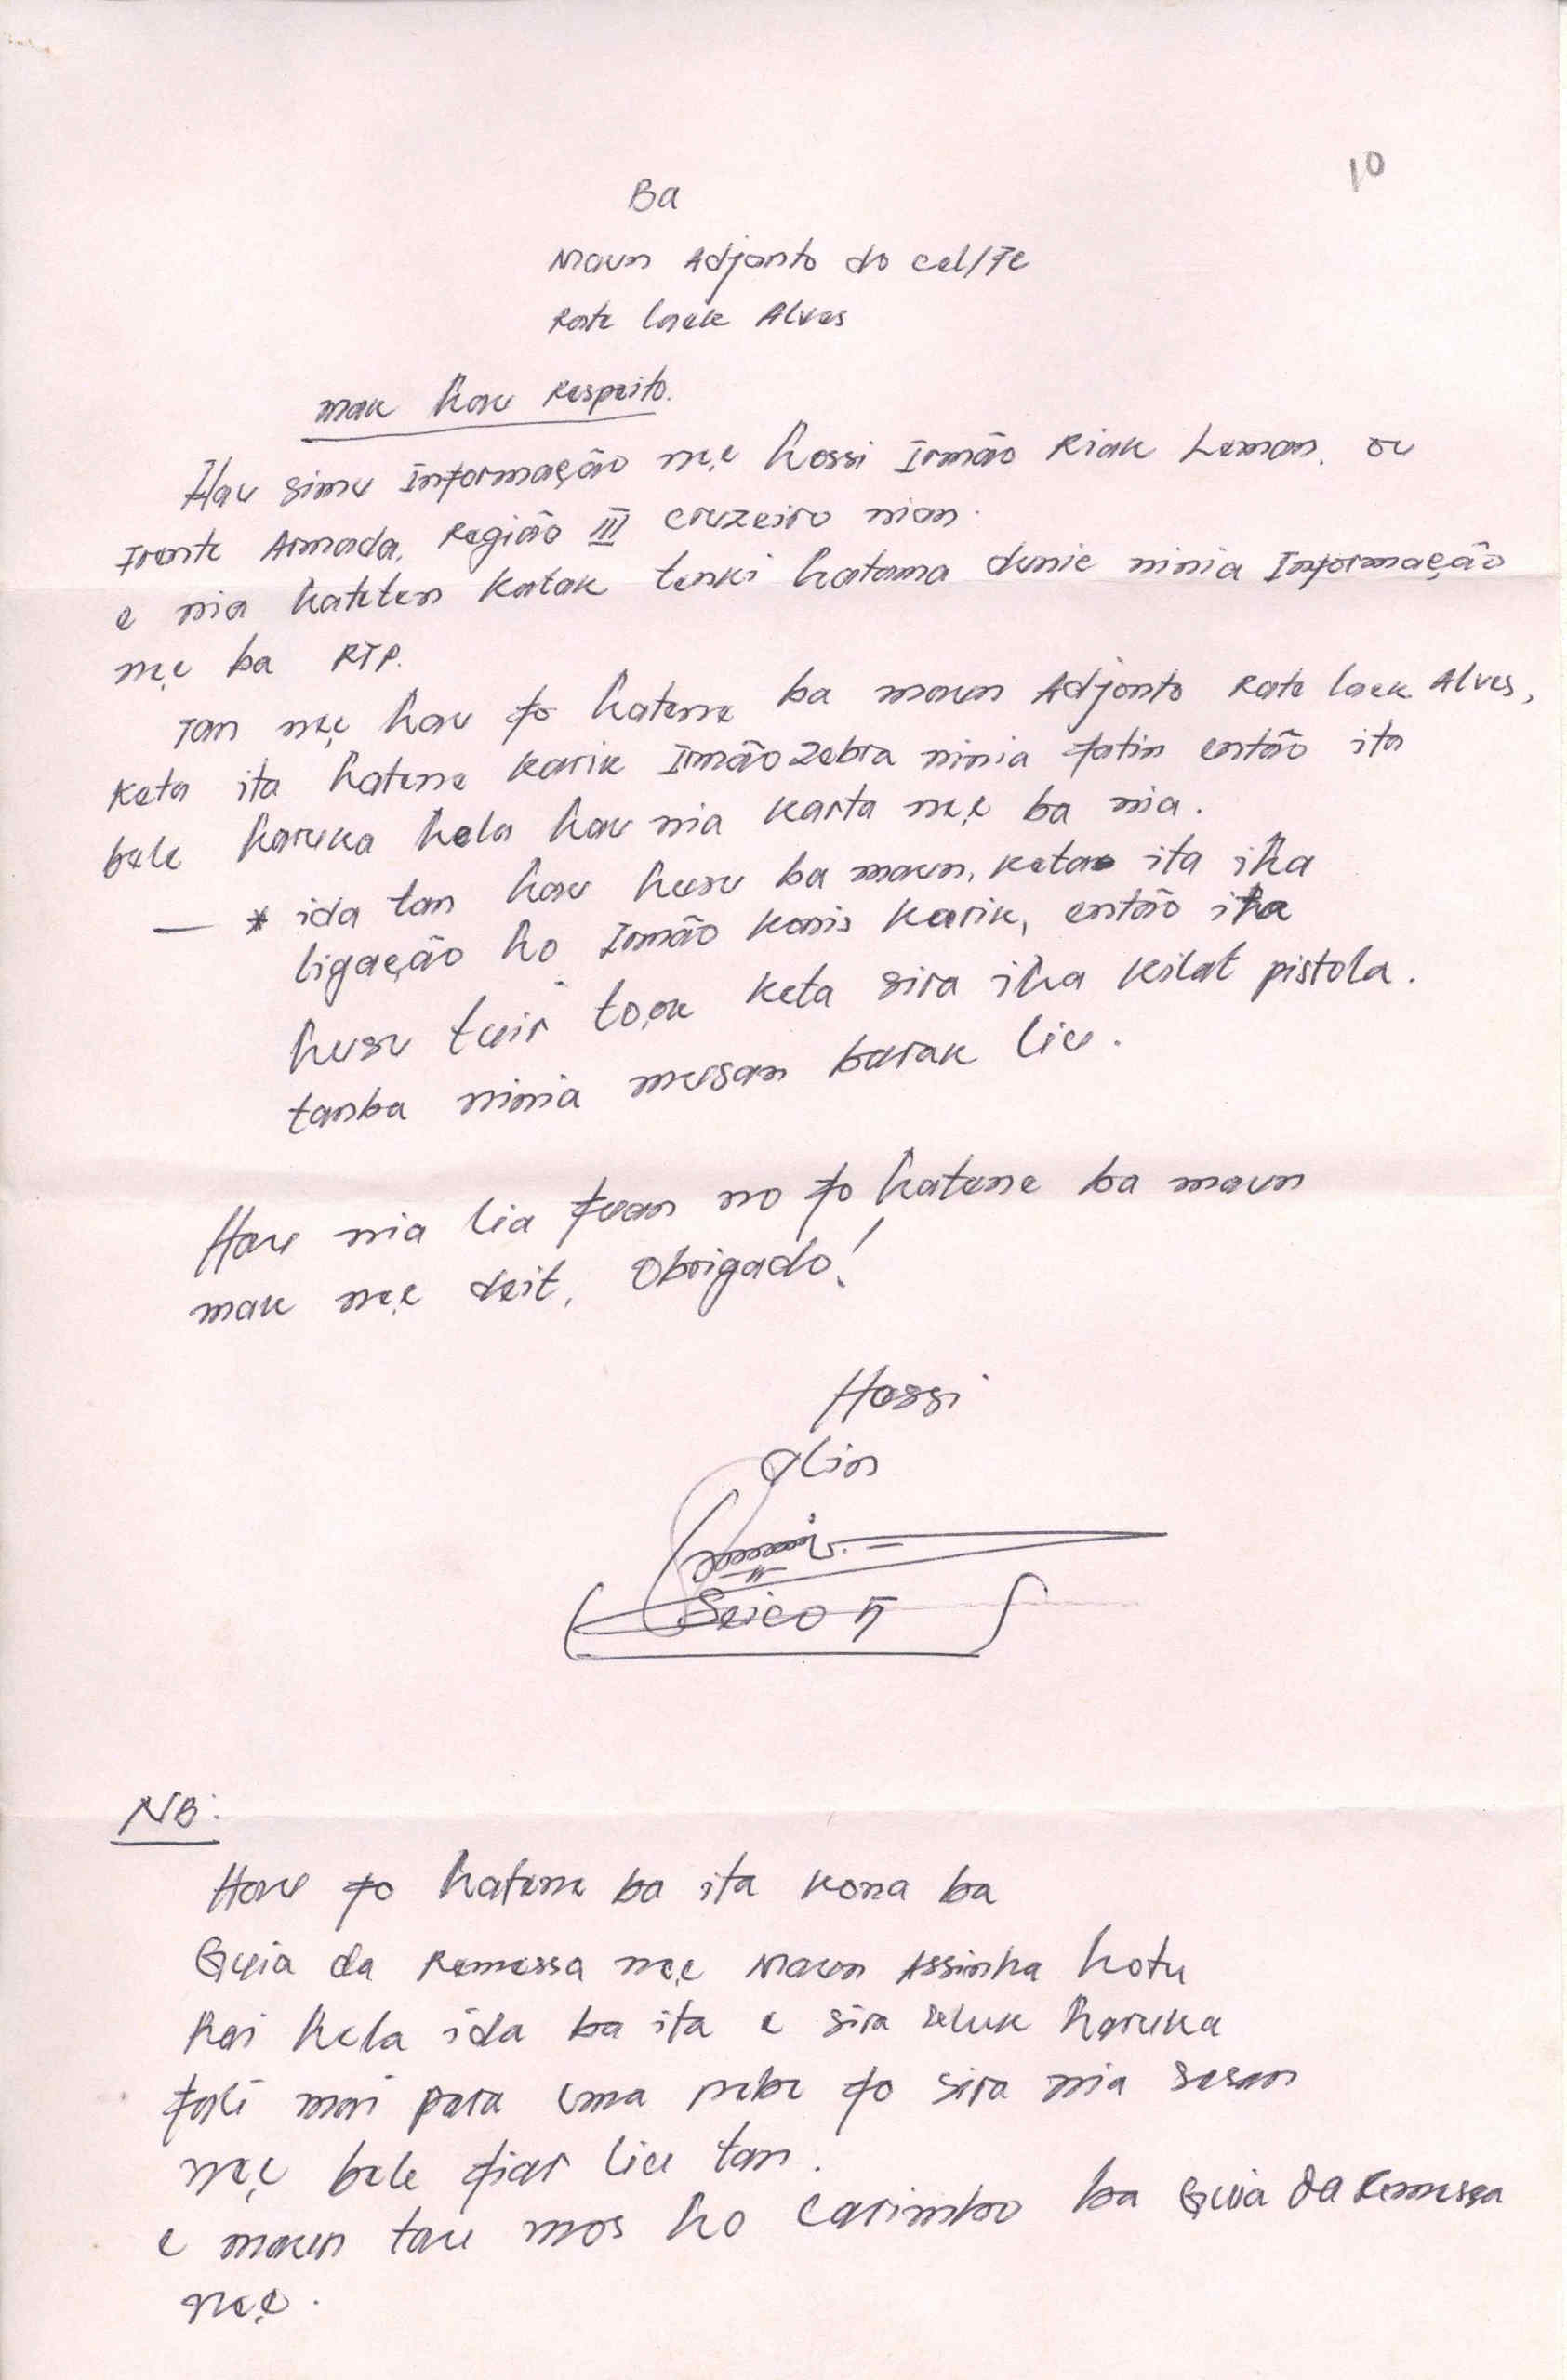 10
Ba
Maun Adjonto do cel/Fe
Rate laek Alves
mak hau Respeito.
Hau simu Informação ne,e hossi Irmão Riak Leman. ou
Frente Armada, Região III cruzeiro nian.
e nia hateten Katak tenki hatama dunie ninia Informação
ne,e ba RTP.
Tan ne,e hau fo hatene ba maun Adjonto Rate laek Alves,
Keta ita hatene karik Irmão Zebra ninia fatin então ita
bele haruka hela hau nia karta ne,e ba nia.
— * ida tan hau husu ba maun, keta ita iha
ligação ho Irmão Konis Karik, então iha
husu tuir to,ok keta sira iha kilat pistola.
tanba ninia musan barak liu.
Hau nia lia fuan no fo hatene ba maun
mak ne,e deit. Obrigado!
Hossi
alin
Seico 5
NB:
Hau fo hatene ba ita kona ba
Guia da Remessa ne,e Maun Assinha hotu
hai hela ida ba ita e sira seluk haruka
fali mai para ema nebe fo sira nia sasan
ne,e bele fiar liu tan.
e maun tau mos ho Carimbo ba Guia da Remessa
ne,e.